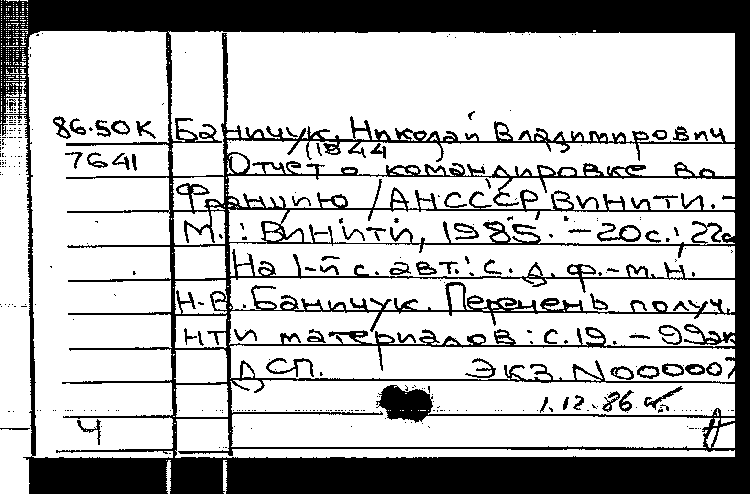 86-50К Баничук, Николай Владимирович
(1844
7641 Отчет о командировке во
Францию / АН СССР, ВИНИТИ. -
М.: ВИНИТИ, 1985. - 20с.; 22с
На 1-й с. авт.: с. д. ф.-м. н.
Н.В. Баничук. Перечень получ.
НТИ материалов: с.19. - 99эк
ДСП. Экз. N000007
1.12.86
4